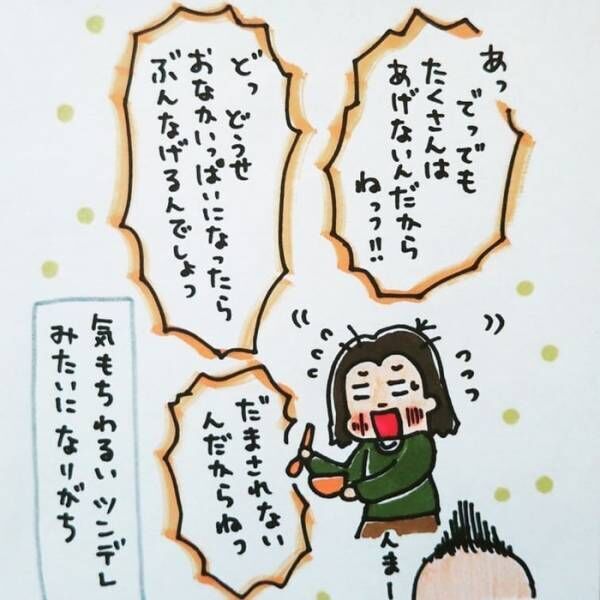 あっ
でっでも
たくさんは
あげないんだから
ねっっ!!
どっ どうせ
おなかいっぱいになったら
ぶんなげるんでしょっ
だまされない
んだからねっ
っっっ
んまー
気もちわるいツンデレ
みたいになりがち